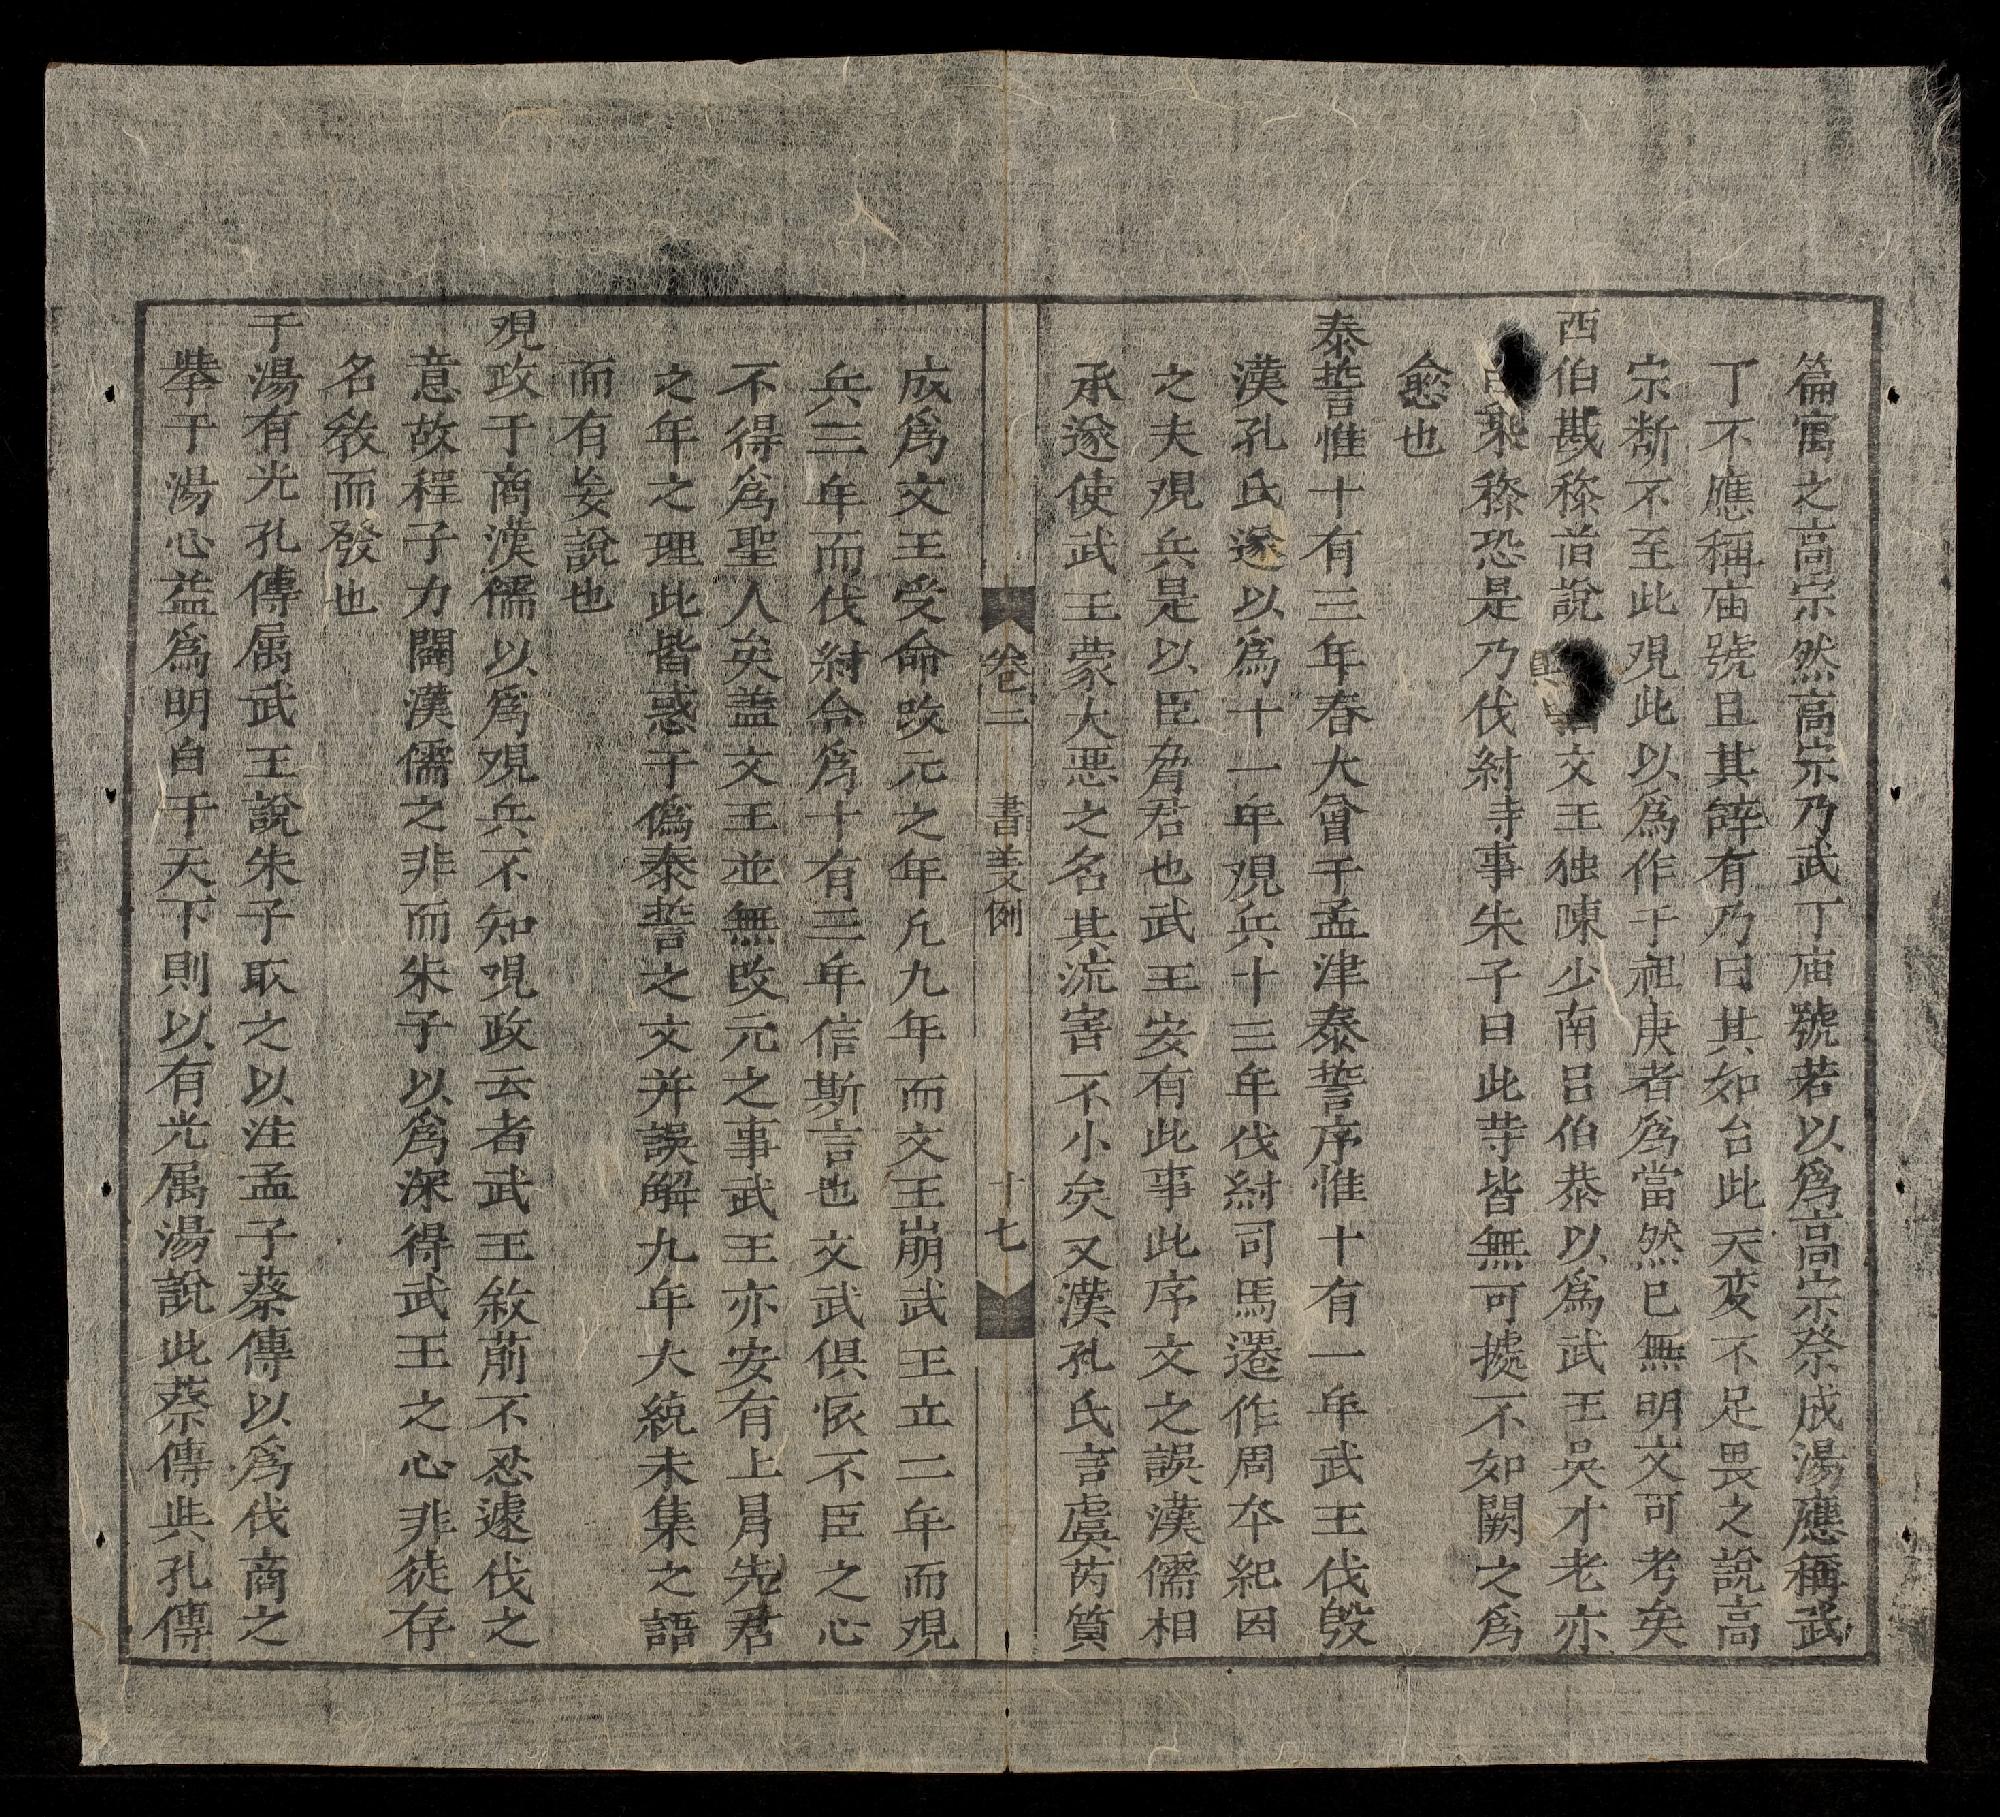 篇寓之高宗然高宗乃武丁庙號若以爲高宗祭成湯應稱武
丁不應稱庙號且其辭有乃曰其如台此天变不足畏之說高
宗断不至此覌此以爲作于祖庚者爲當然已無明文可考矣
西伯戡䅲昔說 文王独陳少南呂伯恭以爲武王吳才老亦
䅲恐是乃伐紂時事朱子曰此䓁皆無可㨿不如闕之爲
愈也
泰誓惟十有三年春大會于孟津泰誓序惟十有一年武王伐殷
漢孔氏遂以爲十一年覌兵十三年伐紂司馬遷作周夲紀因
之夫覌兵是以臣脅君也武王安有此事此序文之誤漢儒相
承遂使武王蒙大悪之名其流害不小矣又漢孔氏言虞芮質
卷二 書義例 十七
成爲文王受命改元之年凡九年而文王崩武王立二年而覌
兵三年而伐紂合爲十有三年信斯言也文武俱怀不臣之心
不得爲聖人矣盖文王並無改元之事武王亦安有上冐先君
之年之理此皆惑于僞泰誓之文并誤解九年大統未集之語
而有妄說也
覌政于商漢儒以爲覌兵不知覌政云者武王敘前不忍遽伐之
意故程子力闢漢儒之非而朱子以爲深得武王之心非徒存
名敎而發也
于湯有光孔傳属武王說朱子取之以注孟子蔡傳以爲伐商之
挙于湯心益爲明白于天下則以有光属湯說此蔡傳與孔傳